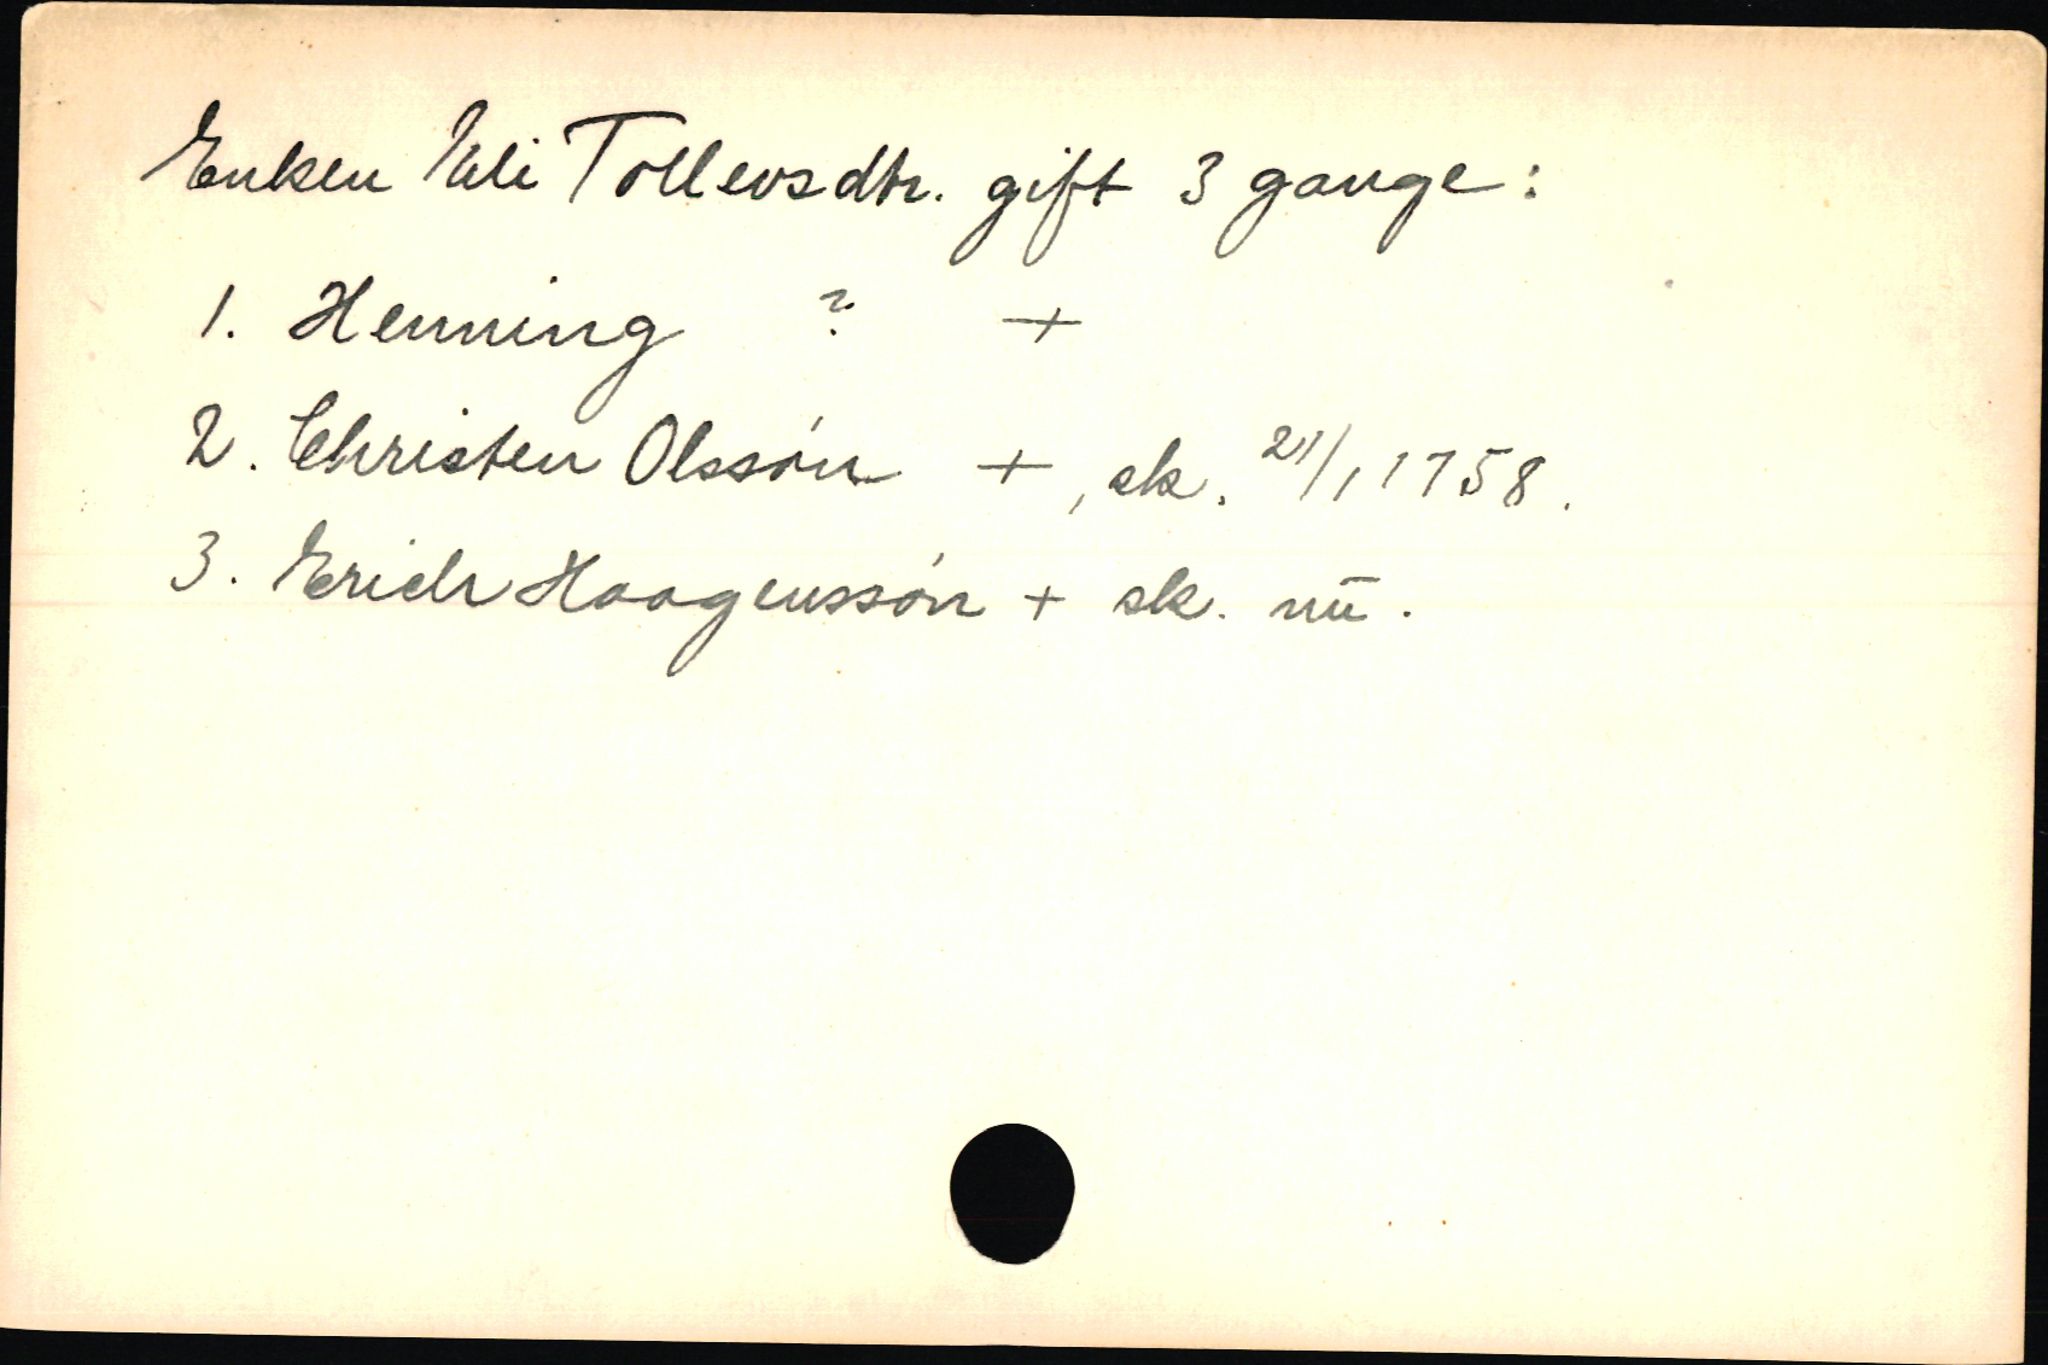 Enken Eli Tollevsdtr. gift 3 gange:
1. Henning ? +
2. Christen Olssón +, sk. 21/1 1758.
3. Erich Haagenssón + sk. nū.